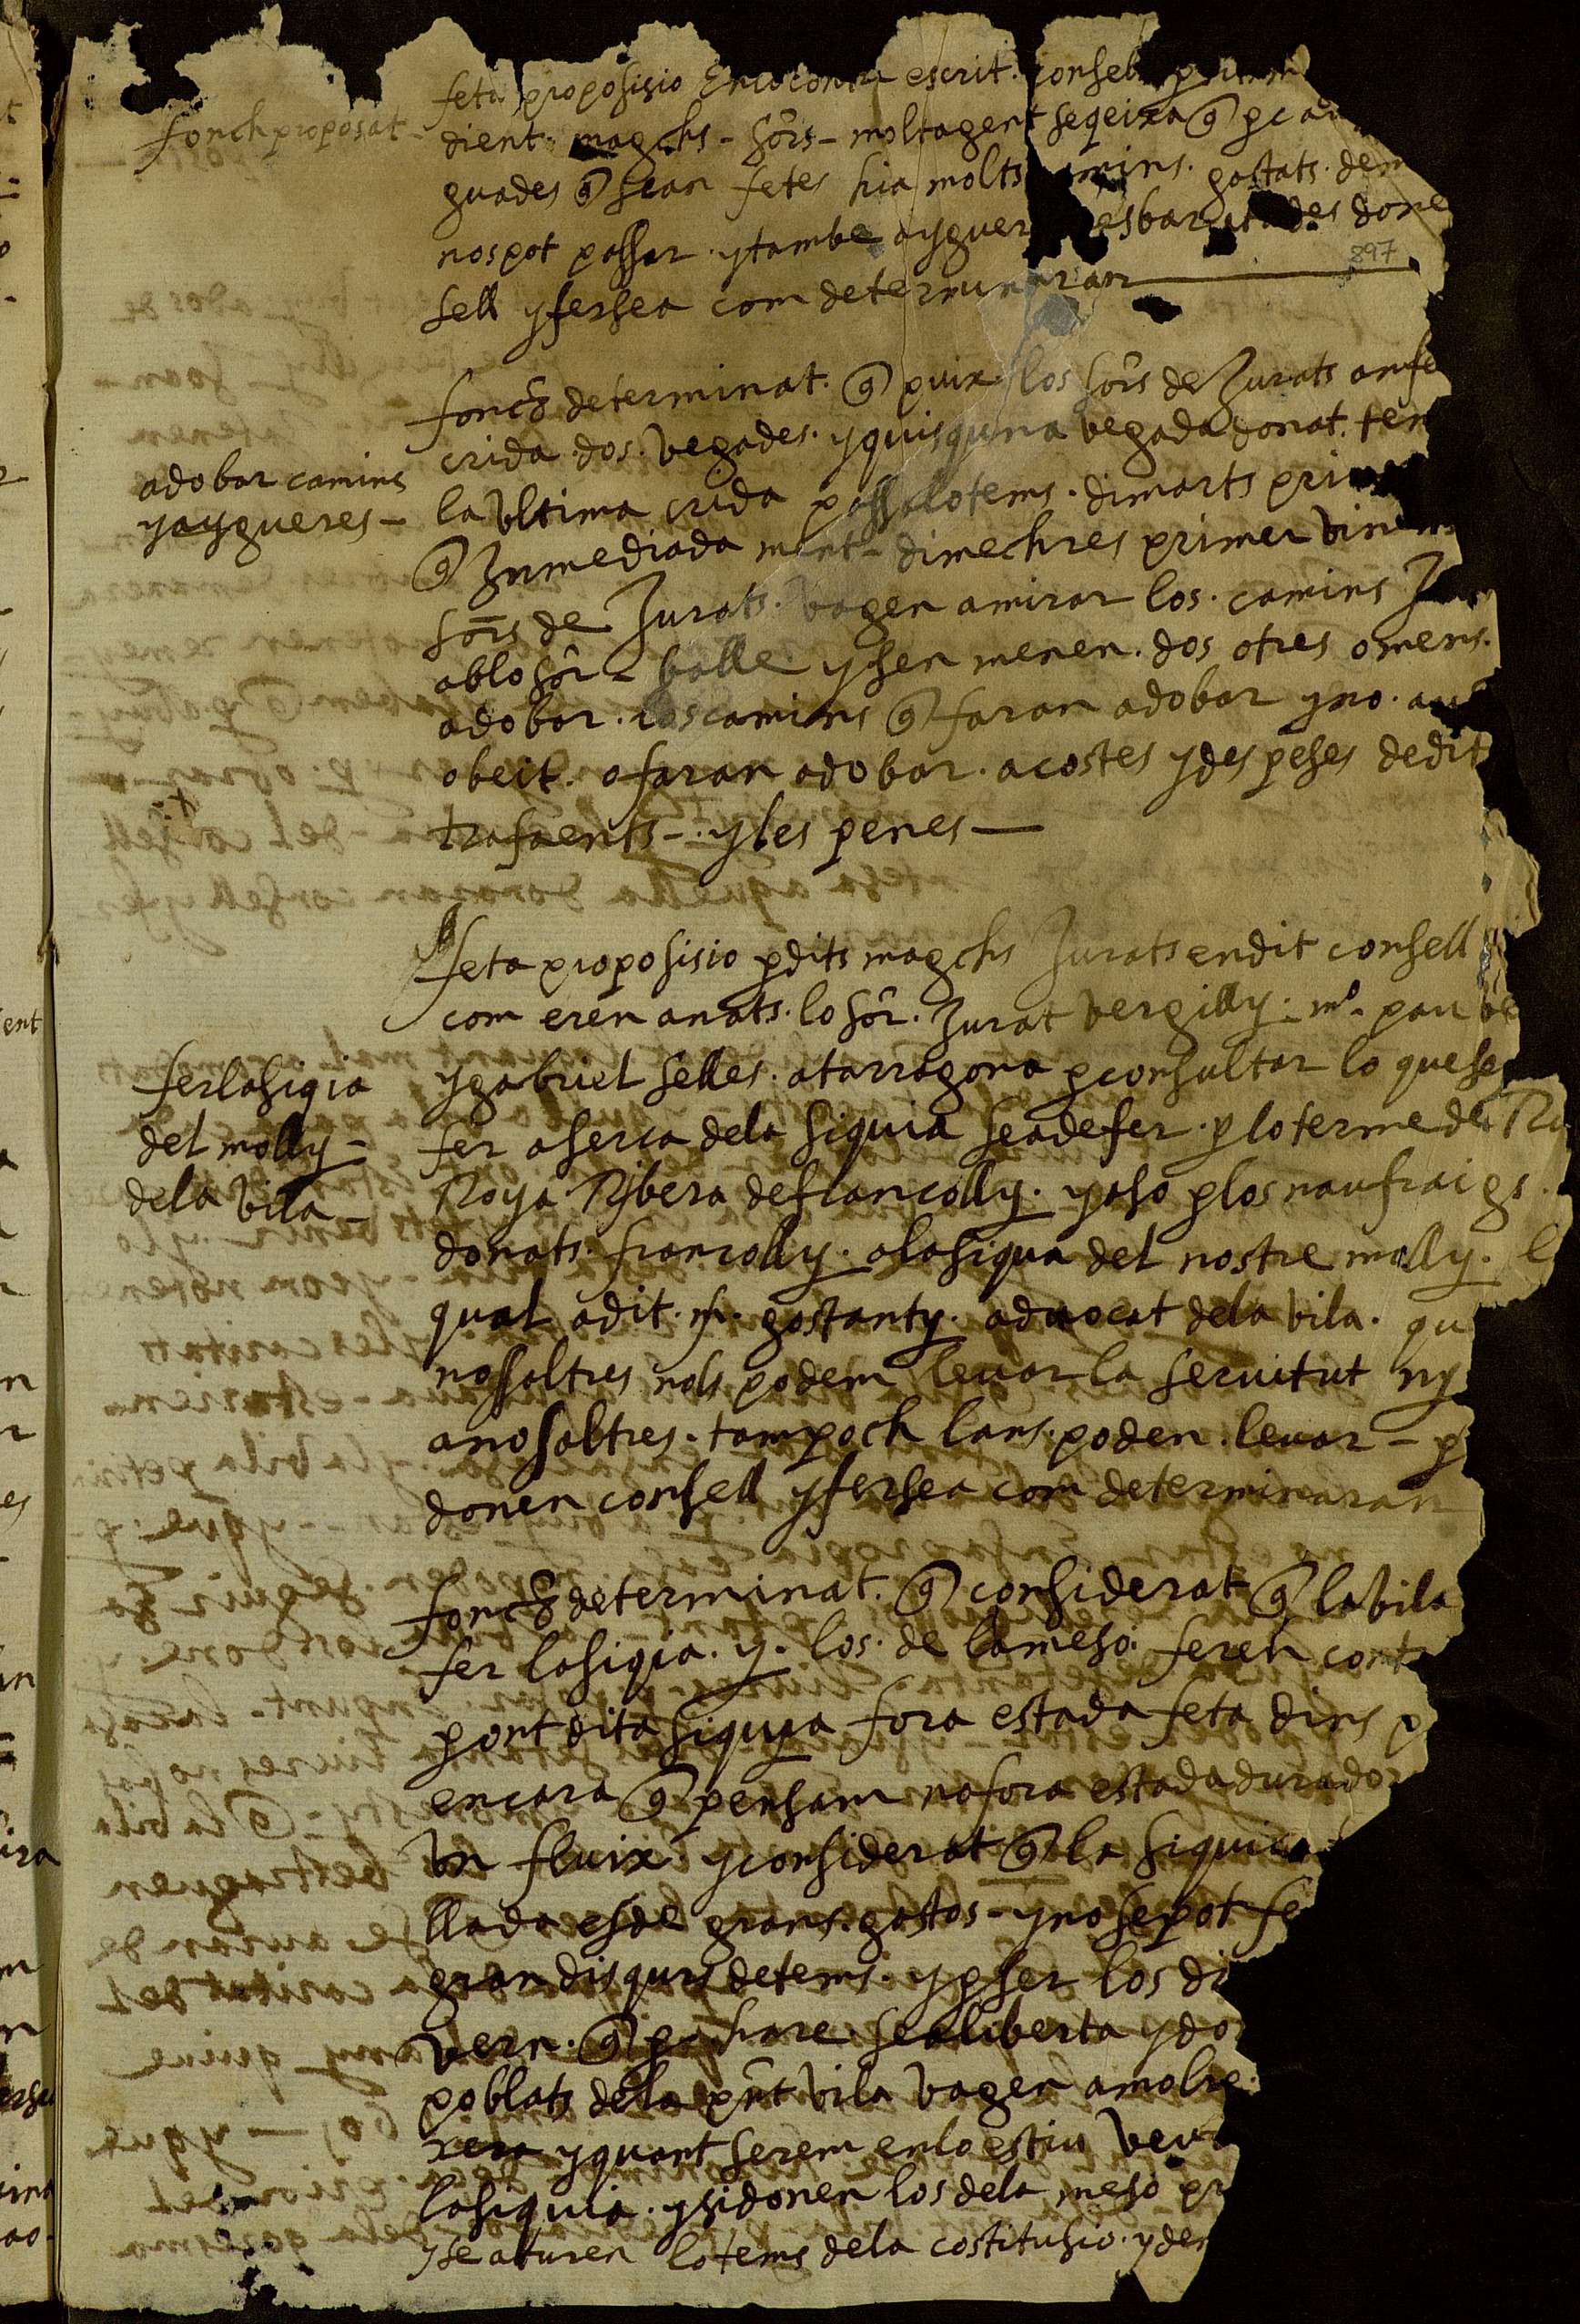 feta proposisio escrit. conseb
fonch proposat dient. magchs - sors - molta gent se qeixa q̃ p
guades q̃ sean fetes hia molts camins. gastats. de
nos pot passar. y tambe ayguer esbar des done
897
sell y fersea com determinaran
fonch determinat. q̃ puix los sors de Jurats an fe
crida dos. vegades. y quisquna vegada donat. tem
adobar camins
y aygueres -
la ultima crida passa lo tems. dimarts prim
q̃ Inmediada ment - dimechres primer vine
sors de Jurats. vagen a mirar los. camins
ab lo sor - balle y sen menen. dos o tres omens.
adobar. los camins q̃ faran adobar y no. au
obeit. o faran adobar. a costes y despeses de dit
trafaents - y les penes
feta proposisio p dits magchs Jurats en dit consell
com eren anats. lo sor. Jurat vergilly. mº. pau
fer la siqia
del molly -
de la vila -
y gabriel selles. a tarragona p consultar lo que se
fer aserca de la siquia sea de fer. p lo terme de
Roya Ribera de francolly. y aso p los naufraigs.
donats. francolly. a la siqua del nostre molly. l
qual a dit. mº. gostanty. advocat de la vila. qu
nosaltres nols podem levar la servitut ny
a nosaltres. tampoch lans. poden. levar - p
donen consell y fersea com determinaran
fonch determinat. q̃ considerat q̃ la vila
fer la siqia. y. los. de la meso. feren cont
pont dita siquya fora estada feta dins p
encara q̃ pensam no fora estada durado
un fluix. y considerat q̃ la siquia
llada es de grans. gastos - y no se pot fe
gran disqurs de tems. y p ser los di
vern. q̃ p are sea liberta y do
poblats de la pñt vila vagen a molre.
xera y quant serem en lo estiu
la siquia. y si donen los de la meso pr
y se aturen lo tems de la costitusio. y de